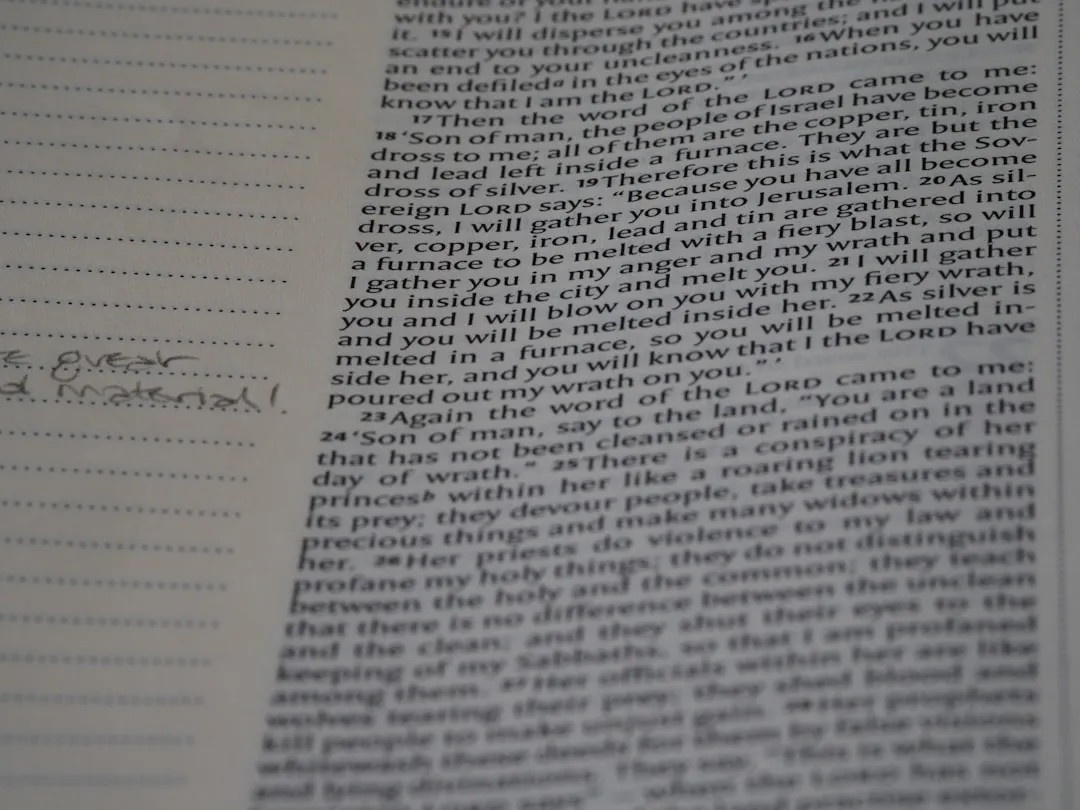 great
material!
with you? I the LORD have
it. 15 I will disperse you among the
scatter you through the countries; and I will put
an end to your uncleanness. 16 When you have
been defiled a in the eyes of the nations, you will
know that I am the LORD." '
17 Then the word of the LORD came to me:
18 'Son of man, the people of Israel have become
dross to me; all of them are the copper, tin, iron
and lead left inside a furnace. They are but the
dross of silver. 19 Therefore this is what the Sov-
ereign LORD says: "Because you have all become
dross, I will gather you into Jerusalem. 20 As sil-
ver, copper, iron, lead and tin are gathered into
a furnace to be melted with a fiery blast, so will
I gather you in my anger and my wrath and put
you inside the city and melt you. 21 I will gather
you and I will blow on you with my fiery wrath,
and you will be melted inside her. 22 As silver is
melted in a furnace, so you will be melted in-
side her, and you will know that I the LORD have
poured out my wrath on you." '
23 Again the word of the LORD came to me:
24 'Son of man, say to the land, "You are a land
that has not been cleansed or rained on in the
day of wrath." 25 There is a conspiracy of her
princes b within her like a roaring lion tearing
its prey; they devour people, take treasures and
precious things and make many widows within
her. 26 Her priests do violence to my law and
profane my holy things; they do not distinguish
between the holy and the common; they teach
that there is no difference between the unclean
and the clean; and they shut their eyes to the
keeping of my Sabbaths, so that I am profaned
among them. 27 Her officials within her are like
wolves tearing their prey; they shed blood and
kill people to make unjust gain. 28 Her prophets
whitewash these deeds for them by false visions
and lying divinations. They say, "This is what the